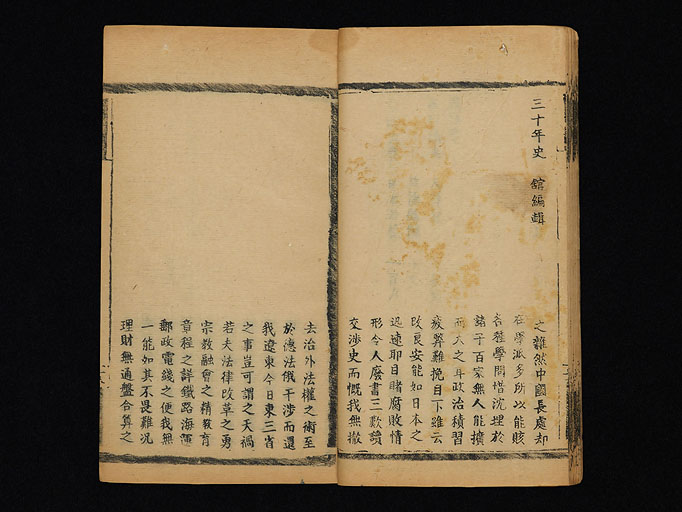 三十年史 館編輯
之雜然中國長處却
在學派多所以能賅
各種學問惜沈埋於
諸子百家無人能擴
而大之耳政治積習
疲弊難挽目下雖云
改良安能如日本之
迅速耶目睹腐敗情
形令人廢書三歎讀
交涉史而慨我無撤
去治外法權之術至
於德法俄干涉而還
我遼東今日東三省
之事豈可謂之天禍
若夫法律改革之勇
宗教融會之精教育
章程之詳鐵路海陸
郵政電綫之便我無
一能如其不畏難況
理財無通盤合算之